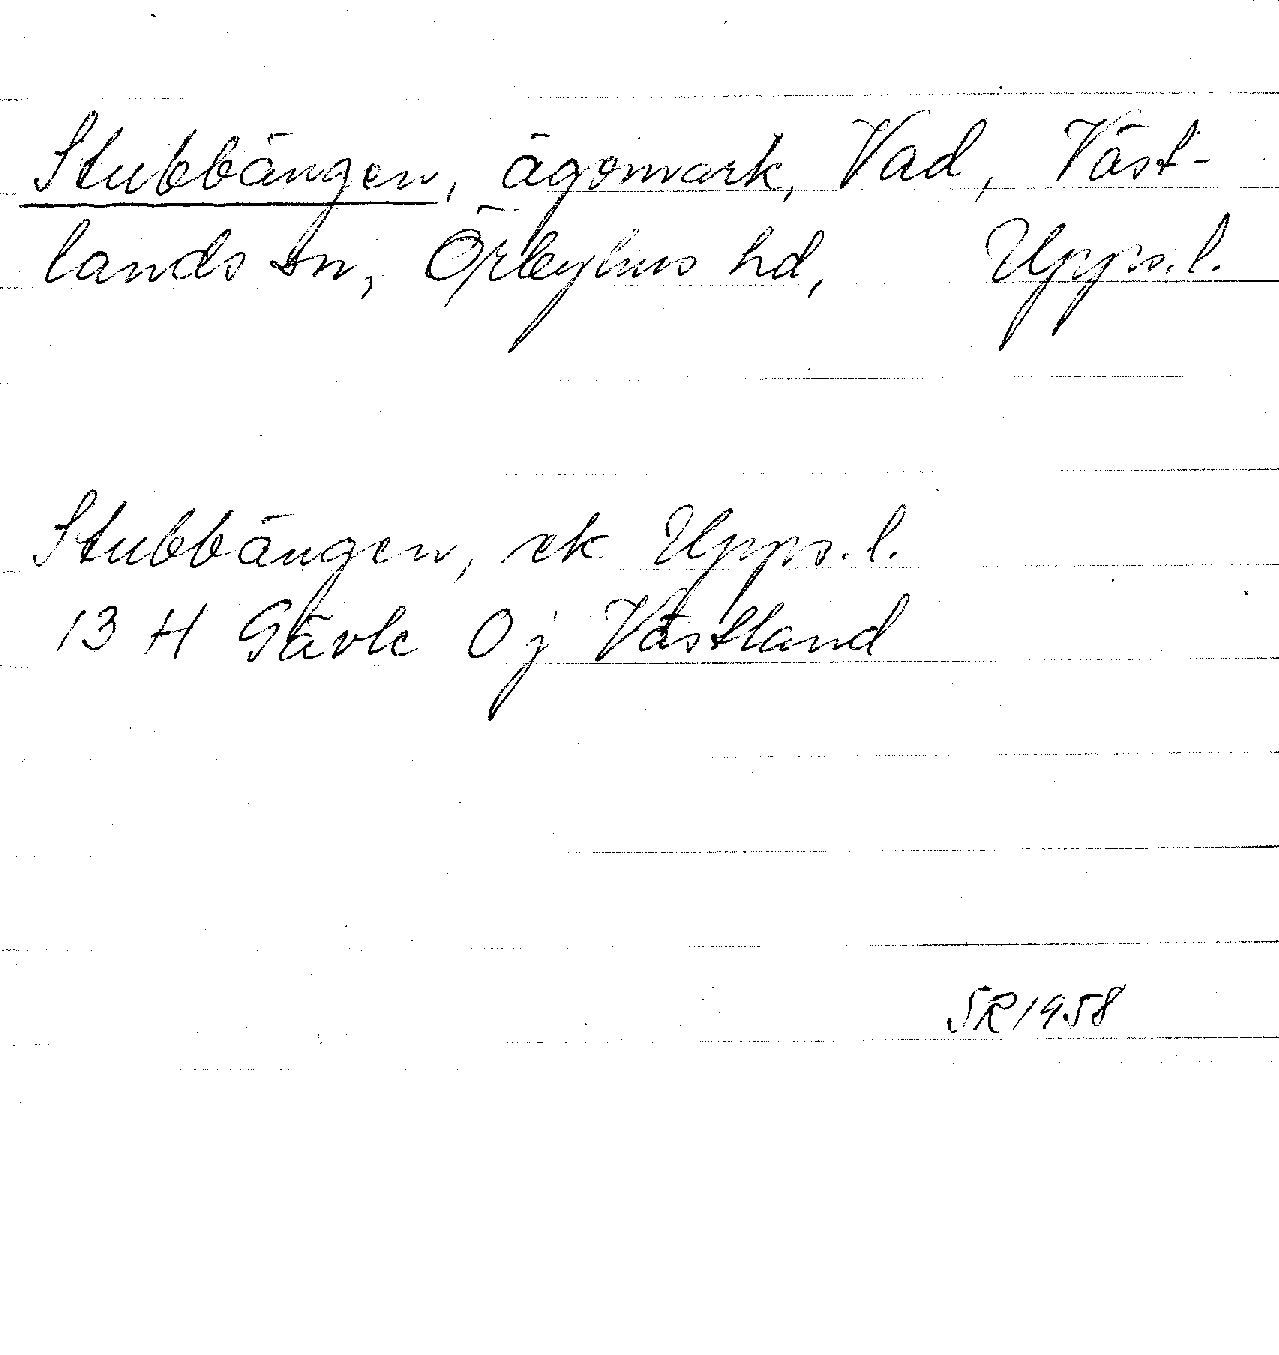 Stubbängen, ägomark, Vad, Väst-
lands sn, Örbyhus hd, Upps.l.
Stubbängen, ek Upps.l.
13 H Gävle 0 j Västland
SR 1958